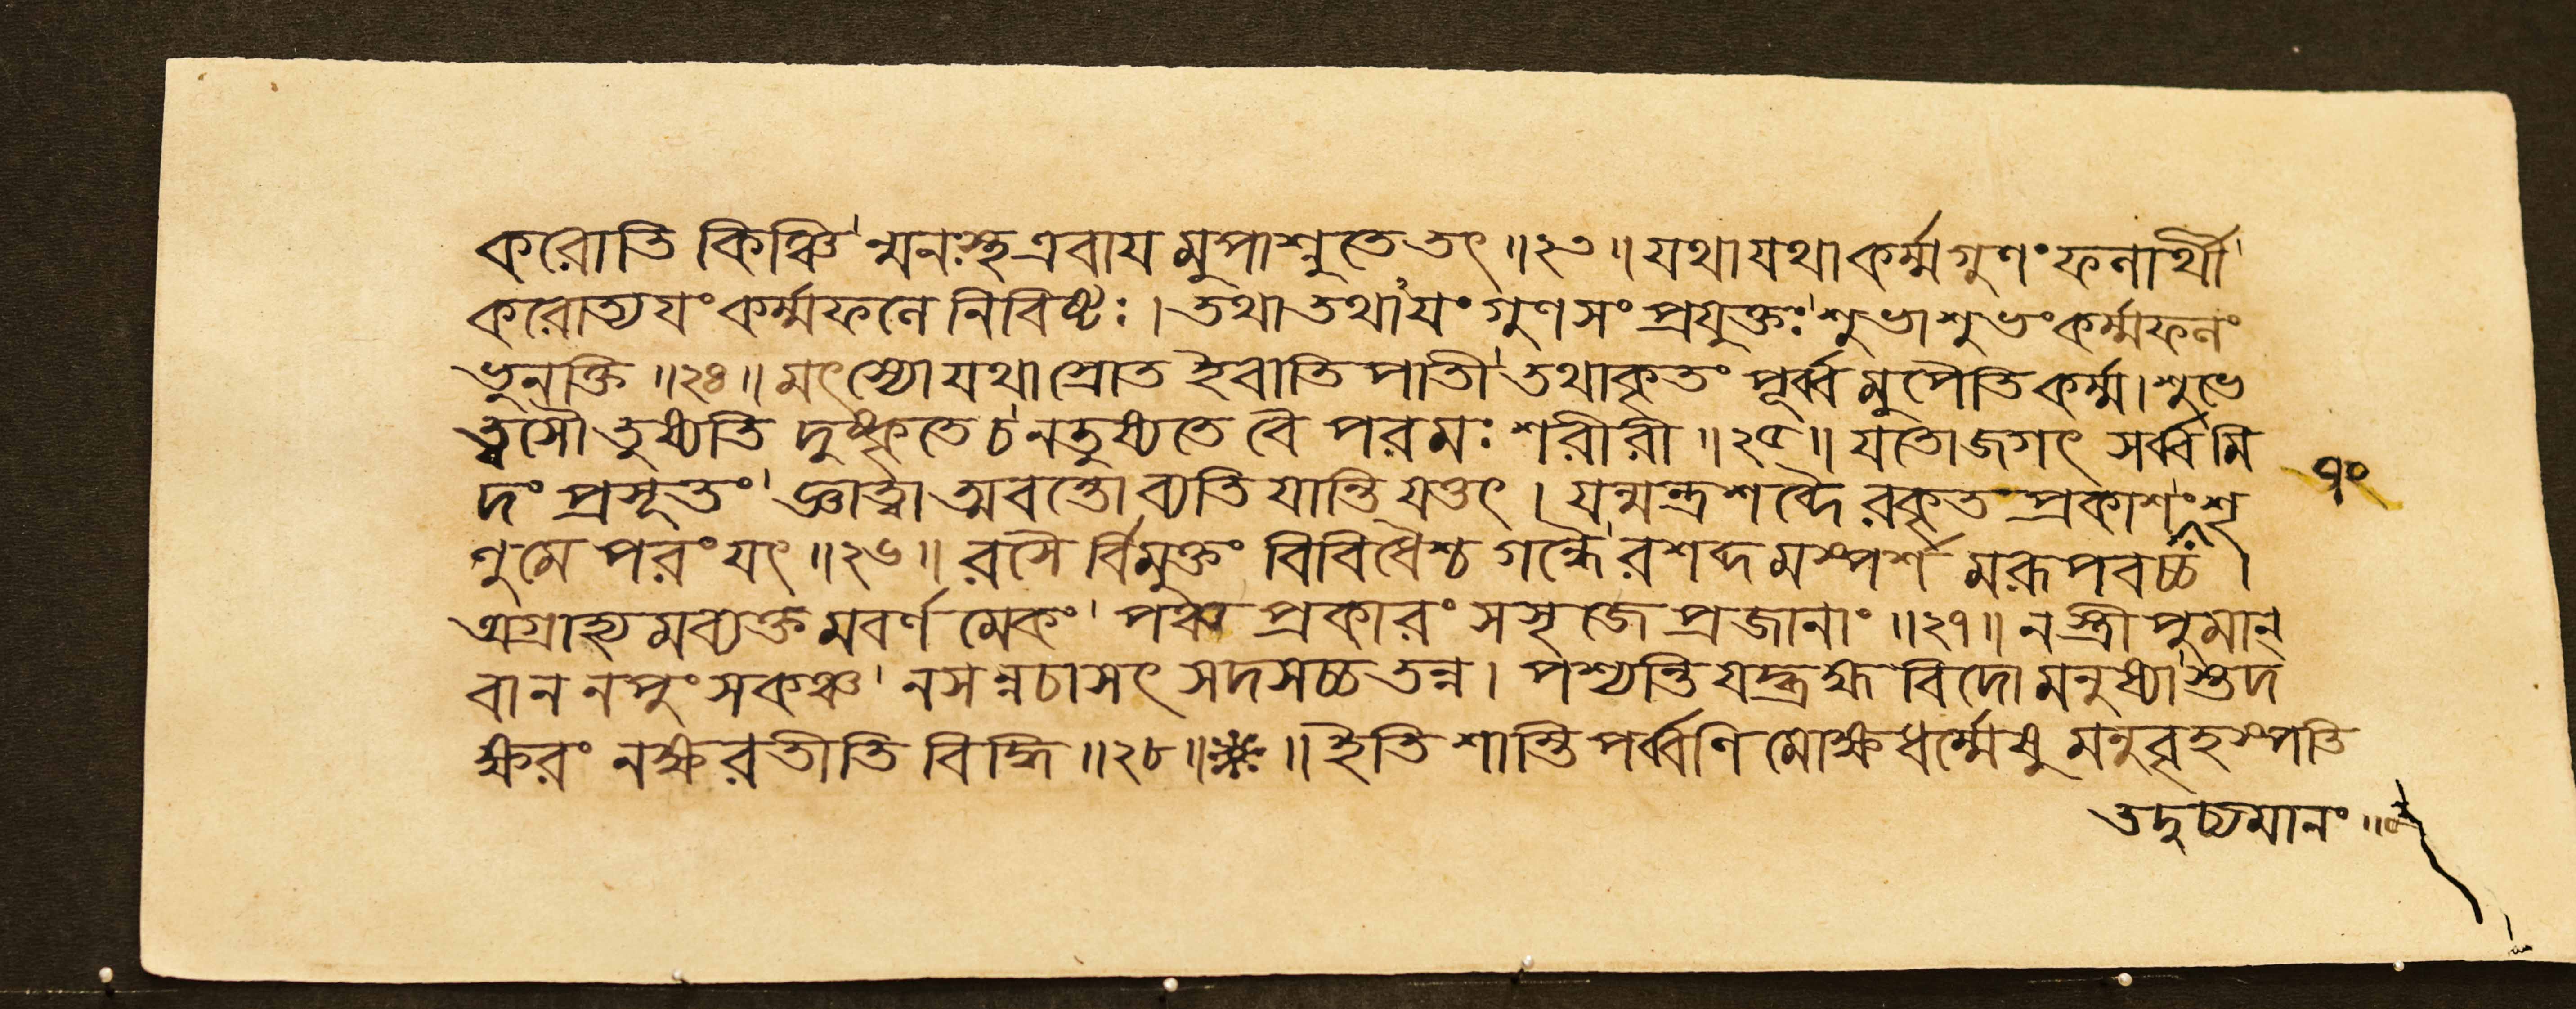 করোতি কিঞ্চি'ন্মনঃস্থ এবায মুপাশ্নুতে তৎ ॥২৩॥ যথা যথা কর্ম্মগুণং ফলার্থী'
করোত্যযং কর্ম্মফলে নিবিষ্টঃ । তথা তথা'যং গুণসং প্রযুক্তঃ' শুভাশুভং কর্ম্মফলং
ভুনক্তি ॥২৪॥ মৎস্যো যথা স্রোত ইবাতি পাতী' তথা কৃতং পূর্ব্ব মুপৈতি কর্ম্ম । শুভে
ত্বসৌ তুষ্যতি দুষ্কৃতে চ' ন তুষ্যতে বৈ পরমঃ শরীরী ॥২৫॥ যতো জগৎ সর্ব্বমি
দং প্রসূতং' জ্ঞাত্বা ত্মবন্তো ব্যতি যান্তি যত্তৎ । যন্মন্ত্রশব্দৈ রকৃত প্রকাশং' শৃ
৭০
ণু মে পরং যৎ ॥২৬॥ রসৈ র্বিমুক্তং বিবিধৈশ্চ গন্ধৈ'রশব্দ মস্পর্শ মরূপবচ্চ ।
অগ্রাহ্য মব্যক্ত মবর্ণ মেকং' পঞ্চ প্রকারং সসৃজে প্রজানাং ॥২৭॥ ন স্ত্রী পুমান্
বা ন নপুংসকঞ্চ' ন সন্ন চাসৎ সদসচ্চ তন্ন । পশ্যন্তি যদ্ব্রহ্ম বিদো মনুষ্যা'স্তদ
ক্ষরং ন ক্ষরতীতি বিদ্ধি ॥২৮॥ ॥ ইতি শান্তি পর্ব্বণি মোক্ষধর্ম্মেষু মনুবৃহস্পতি
তদুচ্যমানং ॥